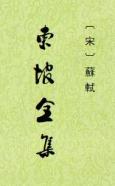 〔宋〕蘇軾
東坡全集